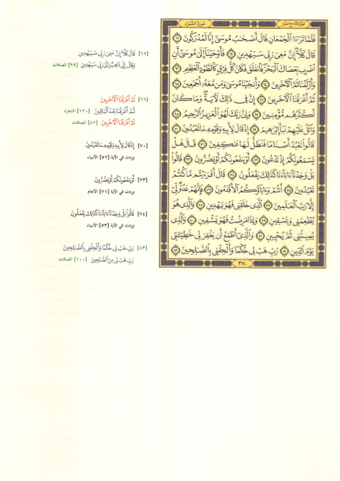 فَلَمَّا تَرَٰٓءَا ٱلۡجَمۡعَانِ قَالَ أَصۡحَٰبُ مُوسَىٰٓ إِنَّا لَمُدۡرَكُونَ ٦١
قَالَ كَلَّآۖ إِنَّ مَعِيَ رَبِّي سَيَهۡدِينِ ٦٢ فَأَوۡحَيۡنَآ إِلَىٰ مُوسَىٰٓ أَنِ
ٱضۡرِب بِّعَصَاكَ ٱلۡبَحۡرَۖ فَٱنفَلَقَ فَكَانَ كُلُّ فِرۡقٖ كَٱلطَّوۡدِ ٱلۡعَظِيمِ ٦٣
وَأَزۡلَفۡنَا ثَمَّ ٱلۡأٓخَرِينَ ٦٤ وَأَنجَيۡنَا مُوسَىٰ وَمَن مَّعَهُۥٓ أَجۡمَعِينَ ٦٥
ثُمَّ أَغۡرَقۡنَا ٱلۡأٓخَرِينَ ٦٦ إِنَّ فِي ذَٰلِكَ لَأٓيَةٗۖ وَمَا كَانَ
أَكۡثَرُهُم مُّؤۡمِنِينَ ٦٧ وَإِنَّ رَبَّكَ لَهُوَ ٱلۡعَزِيزُ ٱلرَّحِيمُ ٦٨
وَٱتۡلُ عَلَيۡهِمۡ نَبَأَ إِبۡرَٰهِيمَ ٦٩ إِذۡ قَالَ لِأَبِيهِ وَقَوۡمِهِۦ مَا تَعۡبُدُونَ ٧٠
قَالُواْ نَعۡبُدُ أَصۡنَامٗا فَنَظَلُّ لَهَا عَٰكِفِينَ ٧١ قَالَ هَلۡ
يَسۡمَعُونَكُمۡ إِذۡ تَدۡعُونَ ٧٢ أَوۡ يَنفَعُونَكُمۡ أَوۡ يَضُرُّونَ ٧٣ قَالُواْ
بَلۡ وَجَدۡنَآ ءَابَآءَنَا كَذَٰلِكَ يَفۡعَلُونَ ٧٤ قَالَ أَفَرَءَيۡتُم مَّا كُنتُمۡ
تَعۡبُدُونَ ٧٥ أَنتُمۡ وَءَابَآؤُكُمُ ٱلۡأَقۡدَمُونَ ٧٦ فَإِنَّهُمۡ عَدُوّٞ لِّيٓ
إِلَّا رَبَّ ٱلۡعَٰلَمِينَ ٧٧ ٱلَّذِي خَلَقَنِي فَهُوَ يَهۡدِينِ ٧٨ وَٱلَّذِي هُوَ
يُطۡعِمُنِي وَيَسۡقِينِ ٧٩ وَإِذَا مَرِضۡتُ فَهُوَ يَشۡفِينِ ٨٠ وَٱلَّذِي
يُمِيتُنِي ثُمَّ يُحۡيِينِ ٨١ وَٱلَّذِيٓ أَطۡمَعُ أَن يَغۡفِرَ لِي خَطِيٓـَٔتِي
يَوۡمَ ٱلدِّينِ ٨٢ رَبِّ هَبۡ لِي حُكۡمٗا وَأَلۡحِقۡنِي بِٱلصَّٰلِحِينَ ٨٣
٣٧٠
[٦٢] قَالَ كَلَّآ إِنَّ مَعِيَ رَبِّي سَيَهۡدِينِ
وَقَالَ إِنِّي ذَاهِبٌ إِلَىٰ رَبِّي سَيَهۡدِينِ [٩٩] الصافات
[٦٦] ثُمَّ أَغۡرَقۡنَا ٱلۡأٓخَرِينَ
ثُمَّ أَغۡرَقۡنَا بَعۡدُ ٱلۡبَاقِينَ [١٢٠] الشعراء
ثُمَّ أَغۡرَقۡنَا ٱلۡأٓخَرِينَ [٨٢] الصافات
[٧٠] إِذۡ قَالَ لِأَبِيهِ وَقَوۡمِهِۦ مَا تَعۡبُدُونَ
وردت في الآية [٥٢] الأنبياء
[٧٣] أَوۡ يَنفَعُونَكُمۡ أَوۡ يَضُرُّونَ
وردت في الآية
[٧٤] قَالُواْ بَلۡ وَجَدۡنَآ ءَابَآءَنَا كَذَٰلِكَ يَفۡعَلُونَ
وردت في الآية [٥٣] الأنبياء
[٨٣] رَبِّ هَبۡ لِي حُكۡمٗا وَأَلۡحِقۡنِي بِٱلصَّٰلِحِينَ
رَبِّ هَبۡ لِي مِنَ ٱلصَّٰلِحِينَ [١٠٠] الصافات